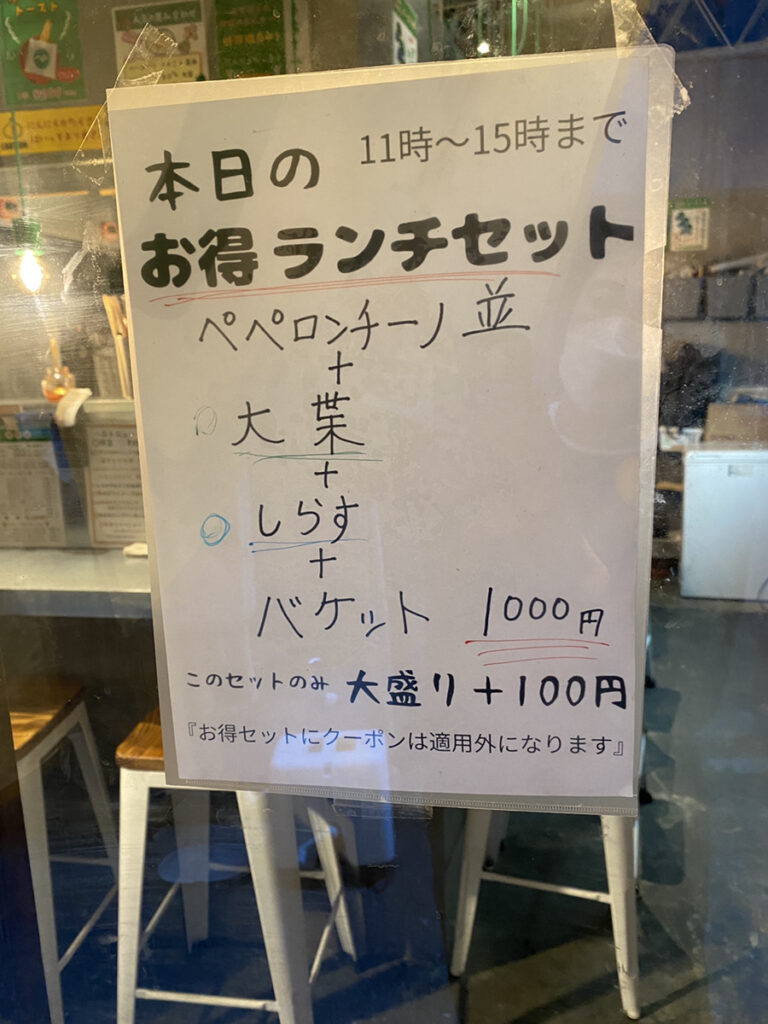 トースト
11時〜15時まで
本日の
お得ランチセット
ペペロンチーノ 並
+
大葉
+
しらす
+
バケット 1000円
このセットのみ 大盛り+100円
『お得セットにクーポンは適用外になります』